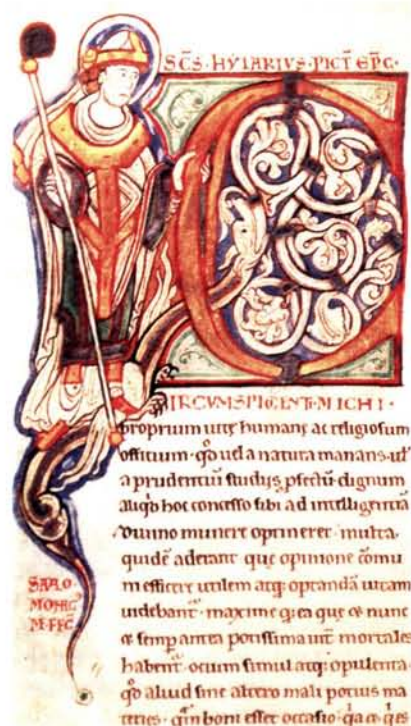 SC̄S · HYLARIVS · PICT̄ EP̄C ·
C
IRCVMSPICIENTI · MICHI ·
proprium uitę humanę ac religiosum
officium · qd̄ uel a natura manans · ul̄
a prudentiū studiis ꝓfectū · dignum
aliqd̄ hoc concesso sibi ad intelligentiā
diuino munere optineret · multa
quidē aderant que opinione cōmu
ni efficere utilem atq; optandā uitam
uidebant̄ · maxime q; ea que & nunc
& semp antea potissima mortales
habent̄ · ocium simul atq; opulentia ·
qd̄ aliud sine altero mali potius ma
teries · qm̄ boni esset occasio · qa &
SAALO
MONIC̄
M̄ FEC̄